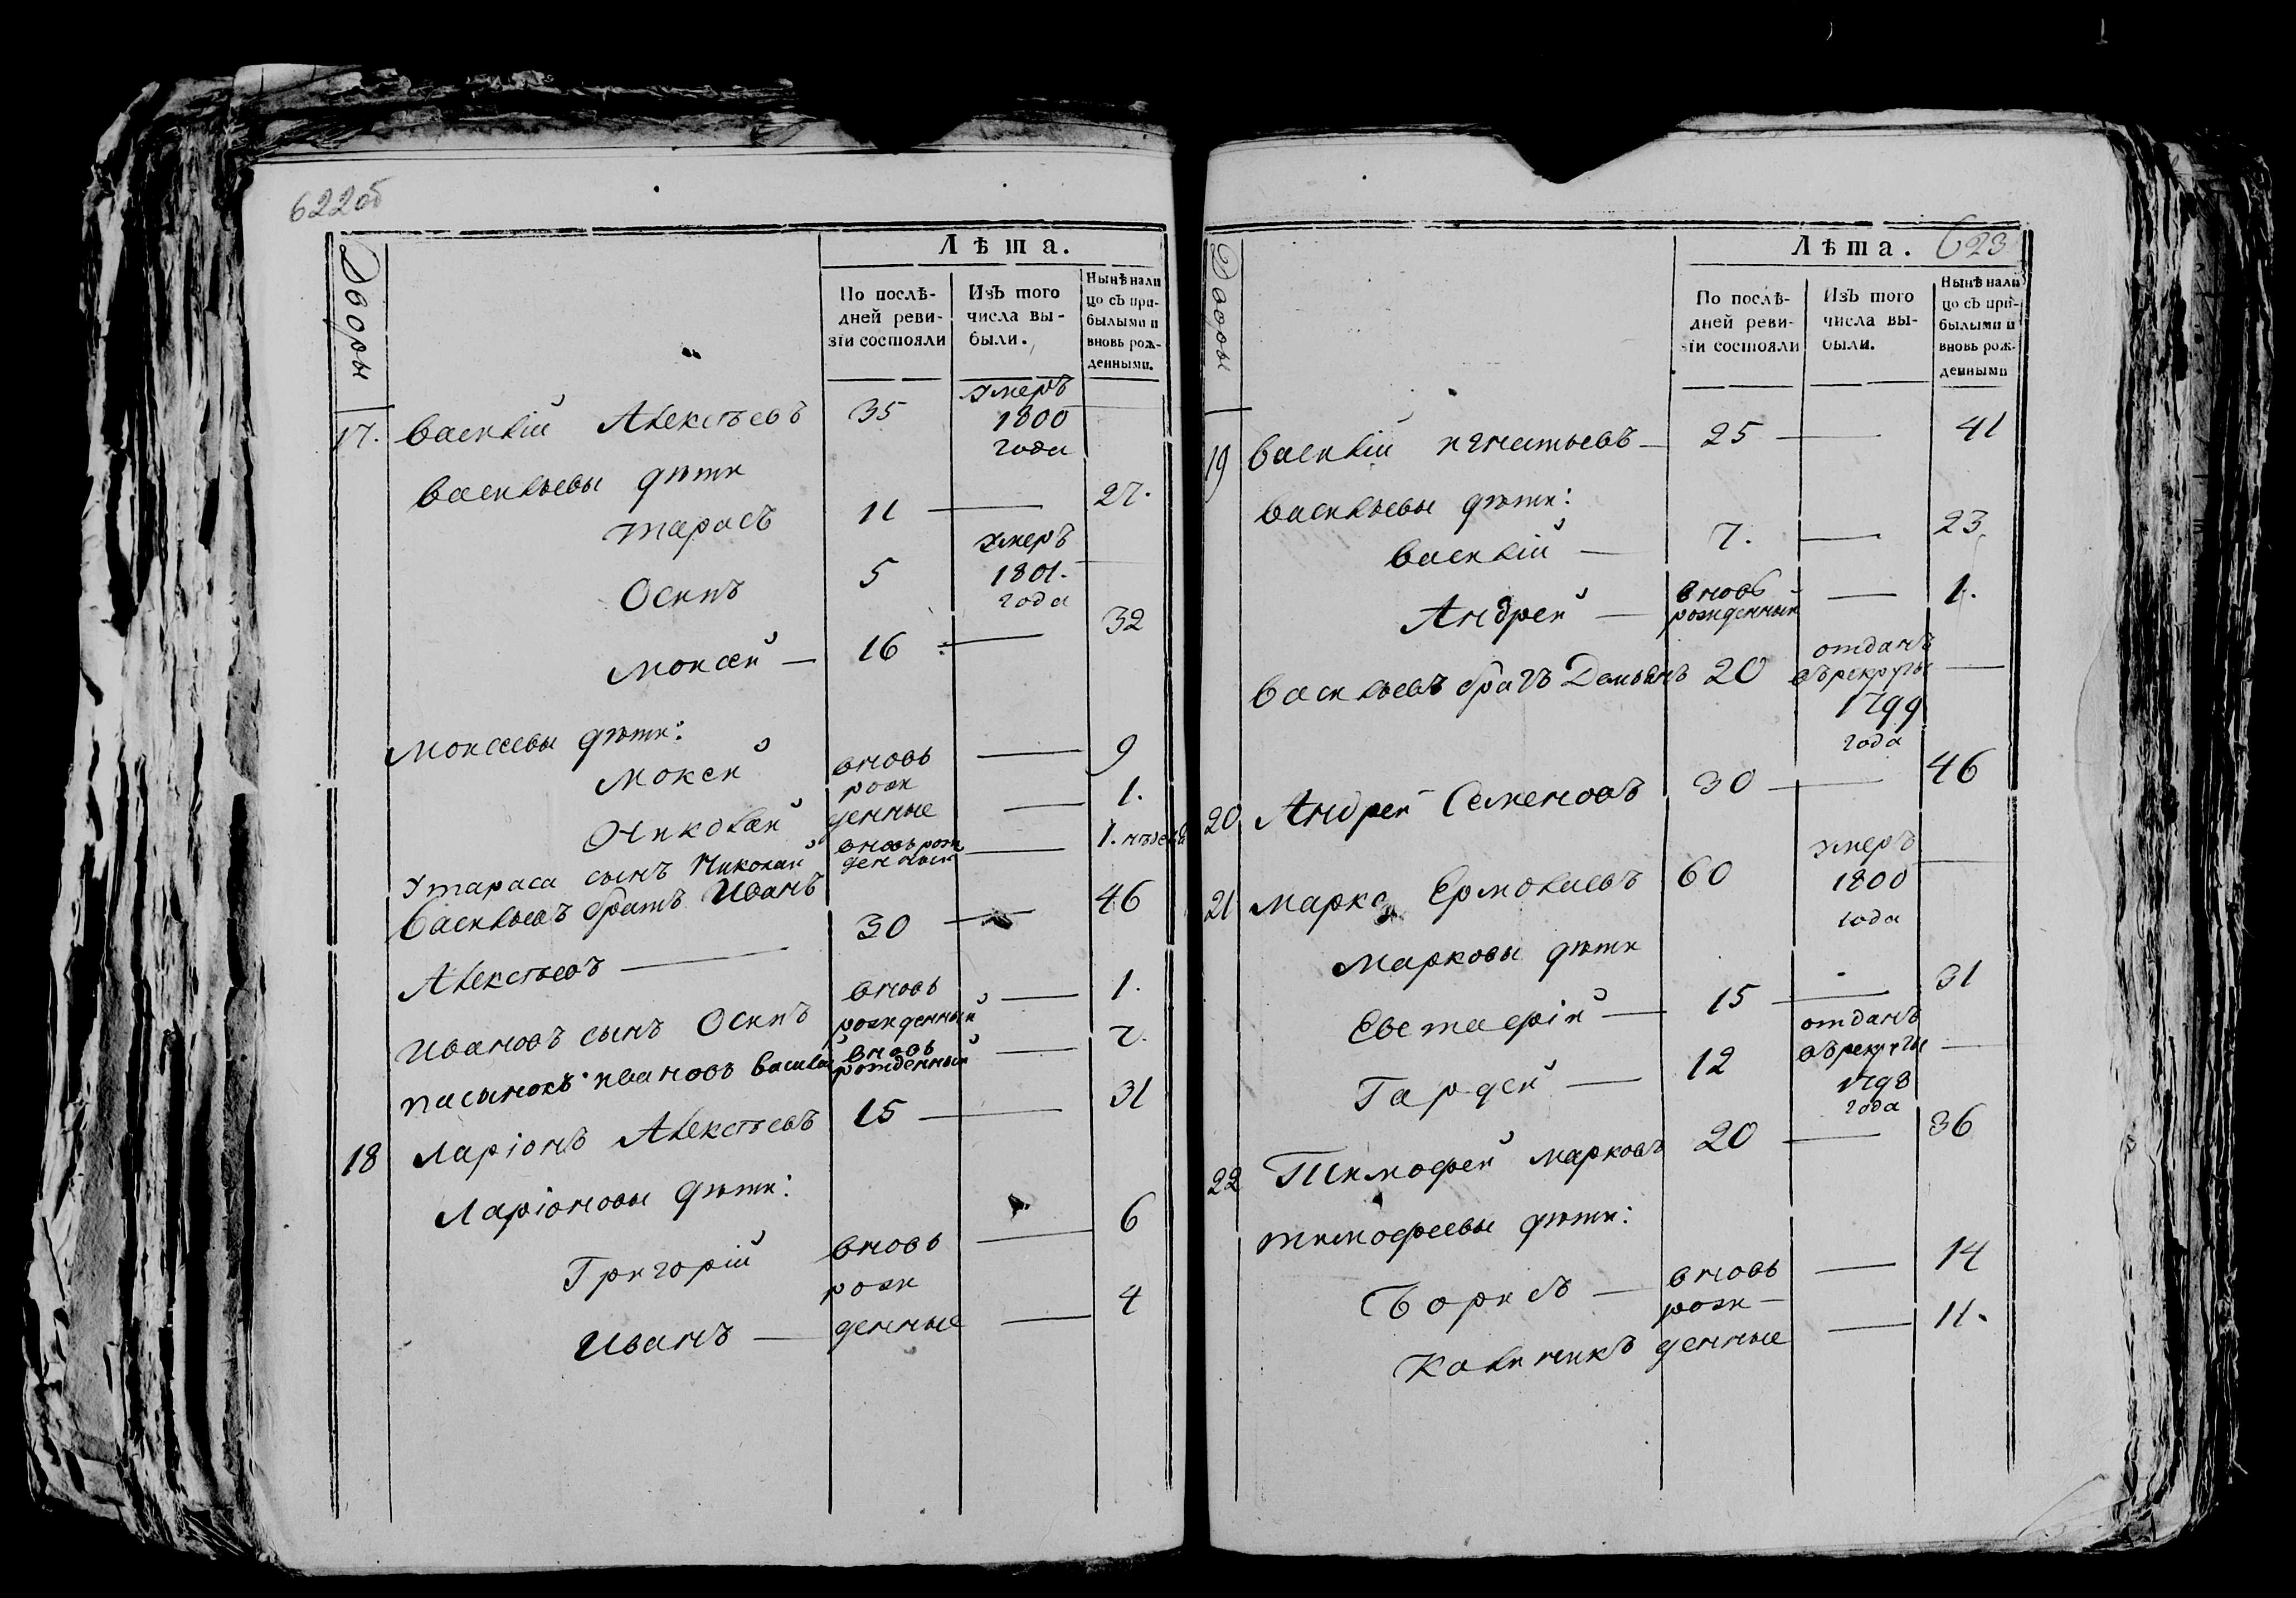 622об
Дворы
Лѣта.
По послѣ-
дней реви-
зіи состояли
Изъ того
числа вы-
были.
Нынѣ нали
цо съ при-
былыми и
вновь рож-
денными.
17. Василій Алексѣевъ 35 умеръ
1800
года
Васильевы дѣти
Тарасъ 11 — 27.
Осипъ 5 умеръ
1801.
года
Мокѣй — 16 — 32
Мокѣевы дѣти:
Мокей вновь — 9
рож
Николай денные — 1.
У тараса сынъ Николай вновь рож
денный — 1. недели
Васильевъ братъ Иванъ
Алексѣевъ — 30 — 46
Ивановъ сынъ Осипъ вновь
рожденный — 1.
пасынокъ ивановъ василей вновь
рожденный — 7.
18 Ларіонъ Алексѣевъ 15 — 31
Ларіоновы дѣти:
Григорій вновь — 6
рож
Иванъ — денные — 4
623
Дворы
Лѣта.
По послѣ-
дней реви-
зіи состояли
Изъ того
числа вы-
были.
Нынѣ нали
цо съ при-
былыми и
вновь рож-
денными
19 Василій игнатьевъ — 25 — 41
Васильевы дѣти:
Василій — 7. — 23
Андрей — вновь
рожденный — 1.
Васильевъ братъ Демьянъ 20 отданъ
въ рекруты —
1799
года
20 Андрей Семеновъ 30 — 46
21 Марко Ермолаевъ 60 умеръ
1800
года
Марковы дѣти
Евстафій — 15 — 31
Гардей — 12 отданъ
въ рекруты —
1798
года
22 Тимофей марковъ 20 — 36
тимофеевы дѣти:
Борисъ — вновь — 14
рож—
Калиникъ денные — 11.